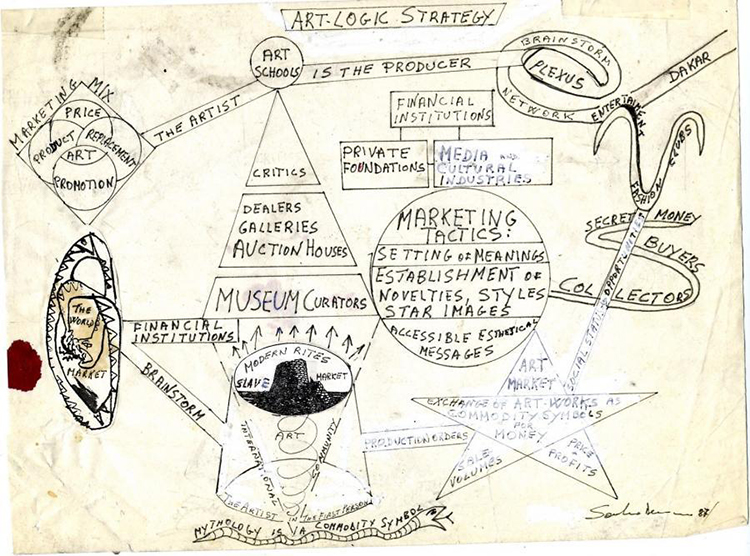 ART-LOGIC STRATEGY
ART
SCHOOLS
IS THE PRODUCER
THE ARTIST
BRAINSTORM
PLEXUS
NETWORK
DAKAR
ENTERTAIMENT
FASHION
CLUBS
MARKETING MIX
PRICE
PRODUCT
REPLACEMENT
ART
PROMOTION
FINANCIAL
INSTITUTIONS
PRIVATE
FOUNDATIONS
MEDIA AND
CULTURAL
INDUSTRIES
CRITICS
DEALERS
GALLERIES
AUCTION HOUSES
MUSEUM CURATORS
MARKETING
TACTICS:
SETTING OF MEANINGS
ESTABLISHMENT OF
NOVELTIES, STYLES
STAR IMAGES
ACCESSIBLE ESTHETICAL
MESSAGES
SECRET MONEY
BUYERS
COLLECTORS
SOCIAL STATUS OPPORTUNITIES
THE WORLD
MARKET
FINANCIAL
INSTITUTIONS
BRAINSTORM
MODERN RITES
SLAVE MARKET
ART
INTERNATIONAL
COMMUNITY
THE ARTIST IN THE FIRST PERSON
MYTHOLOGY IS A COMMODITY SYMBOL
PRODUCTION ORDERS
ART
MARKET
EXCHANGE OF ART-WORKS AS
COMMODITY SYMBOLS
FOR
MONEY
SALE
VOLUMES
PRICE
PROFITS
87/